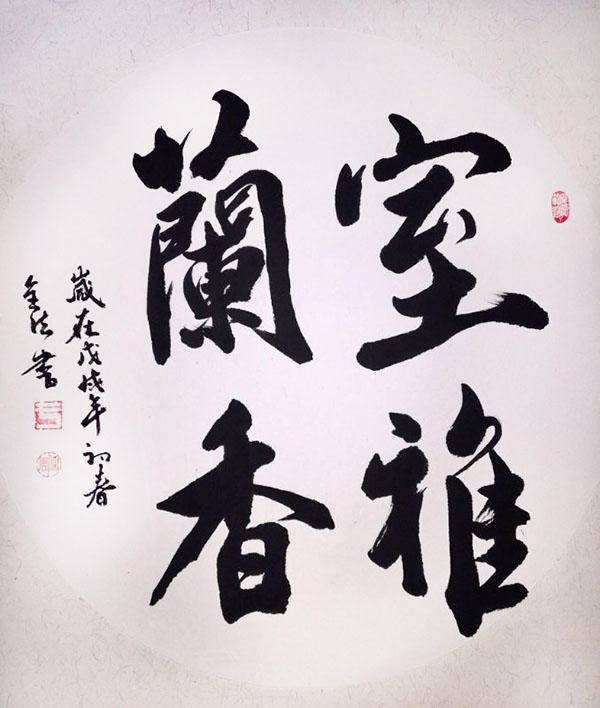 室雅
蘭香
歲在戊戌年初春
金法書